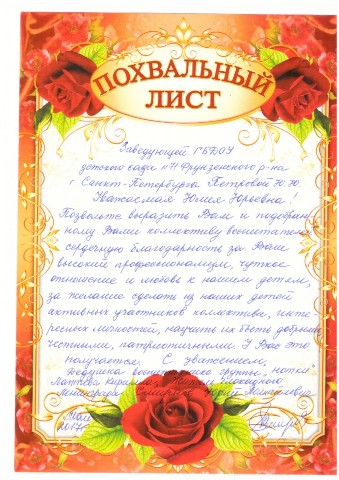 ПОХВАЛЬНЫЙ
ЛИСТ
Заведующей ГБДОУ
детского сада Фрунзенского р-на
г. Санкт-Петербурга Петровой Ю.Ю.
Уважаемая Юлия Юрьевна!
Позвольте выразить Вам и подобран
ному Вами коллективу воспитателей
сердечную благодарность за Ваш
высокий профессионализм, чуткое
отношение и любовь к нашим детям,
за желание сделать из наших детей
активных участников коллектива, инте
ресных личностей, научить их быть добрыми
честными, патриотичными. У Вас это
получается. С уважением,
Дедушка группы,
Кирилла, Блокадного
Ленинграда Юрий
Май
2017г